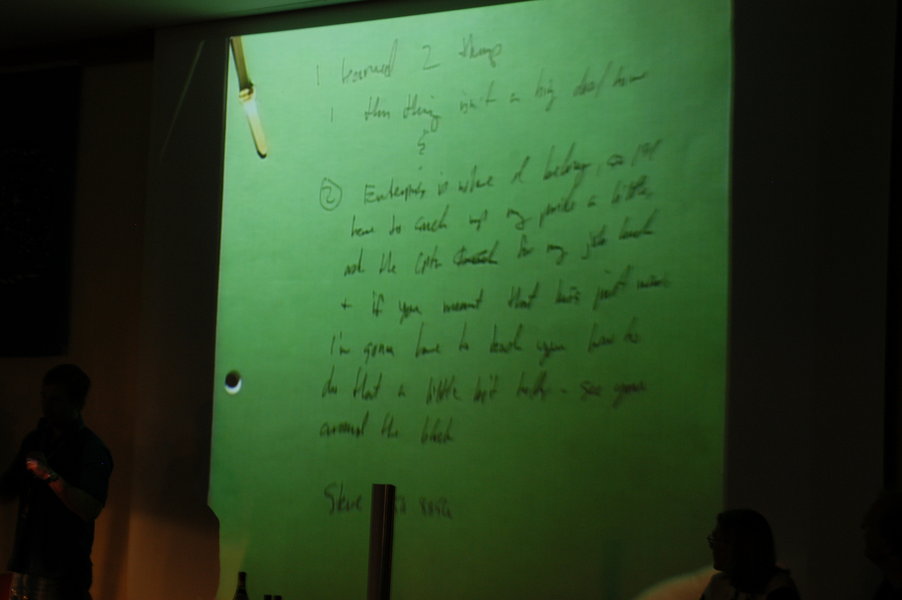 I learned 2 things
1 this thing isn't a big deal here
&
② Enterprise is where I belong, so I'll
have to suck up my pride a little
ask the Cptn for my job back
+ if you meant that kiss just now
I'm gonna have to teach you how to
do that a little bit better - see you
around the block
Steve